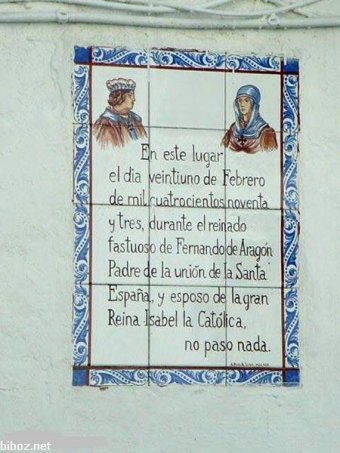 En este lugar
el dia veintiuno de Febrero
de mil cuatrocientos noventa
y tres, durante el reinado
fastuoso de Fernando de Aragón
Padre de la unión de la Santa
España, y esposo de la gran
Reina Isabel la Católica,
no paso nada.
biboz.net